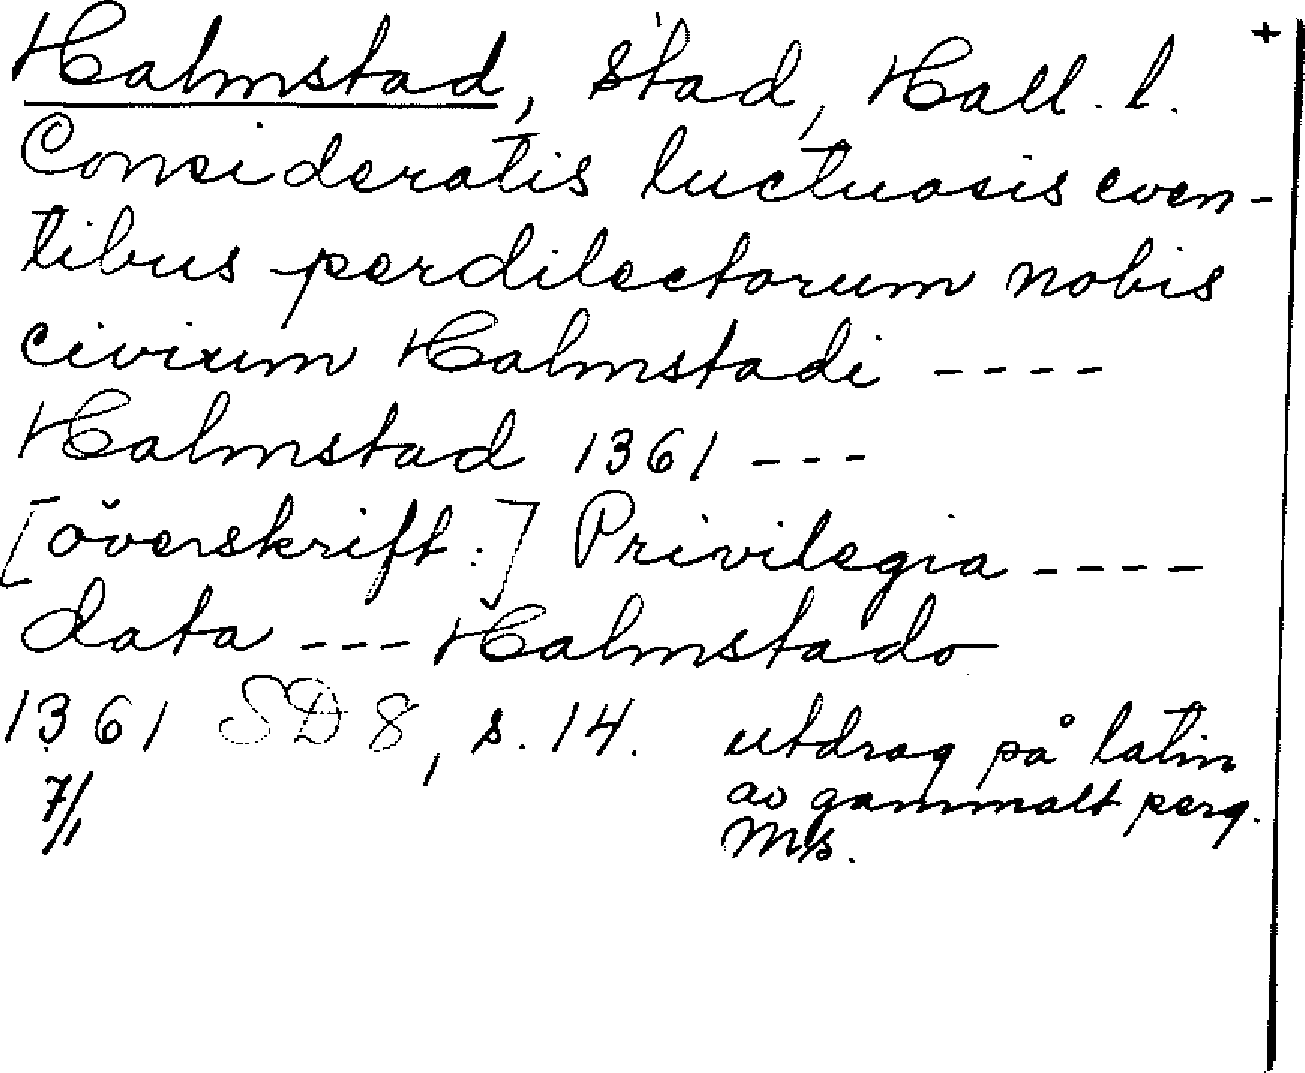 Halmstad, stad, Hall. l. +
Consideratis luctuosis even-
tibus perdilectorum nobis
civium Halmstadi ----
Halmstad 1361 ---
[överskift:] Privilegia ----
data --- Halmstado
1361 SD 8, s. 14. utdrag på latin
7/1 av gammalt perg.
Ms.